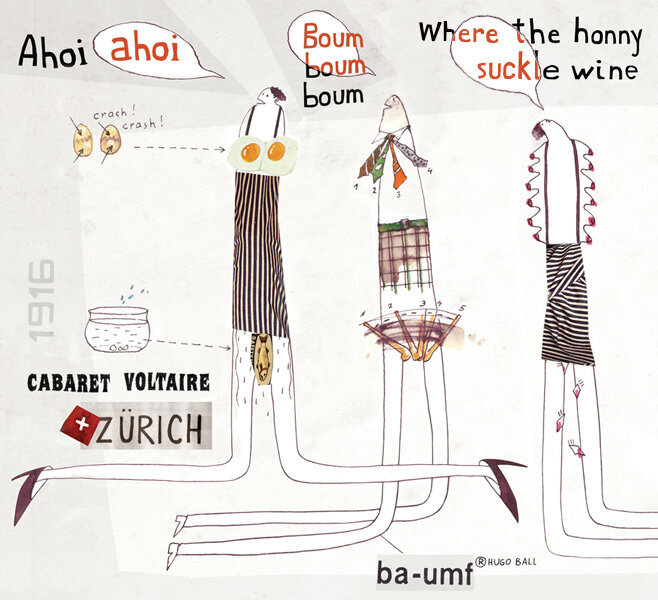 Ahoi ahoi
Boum
boum
boum
Where the honny
suckle wine
crach!
crash!
1 2 3 4
1 2 3 4 5
1916
CABARET VOLTAIRE
ZÜRICH
ba-umf ® HUGO BALL